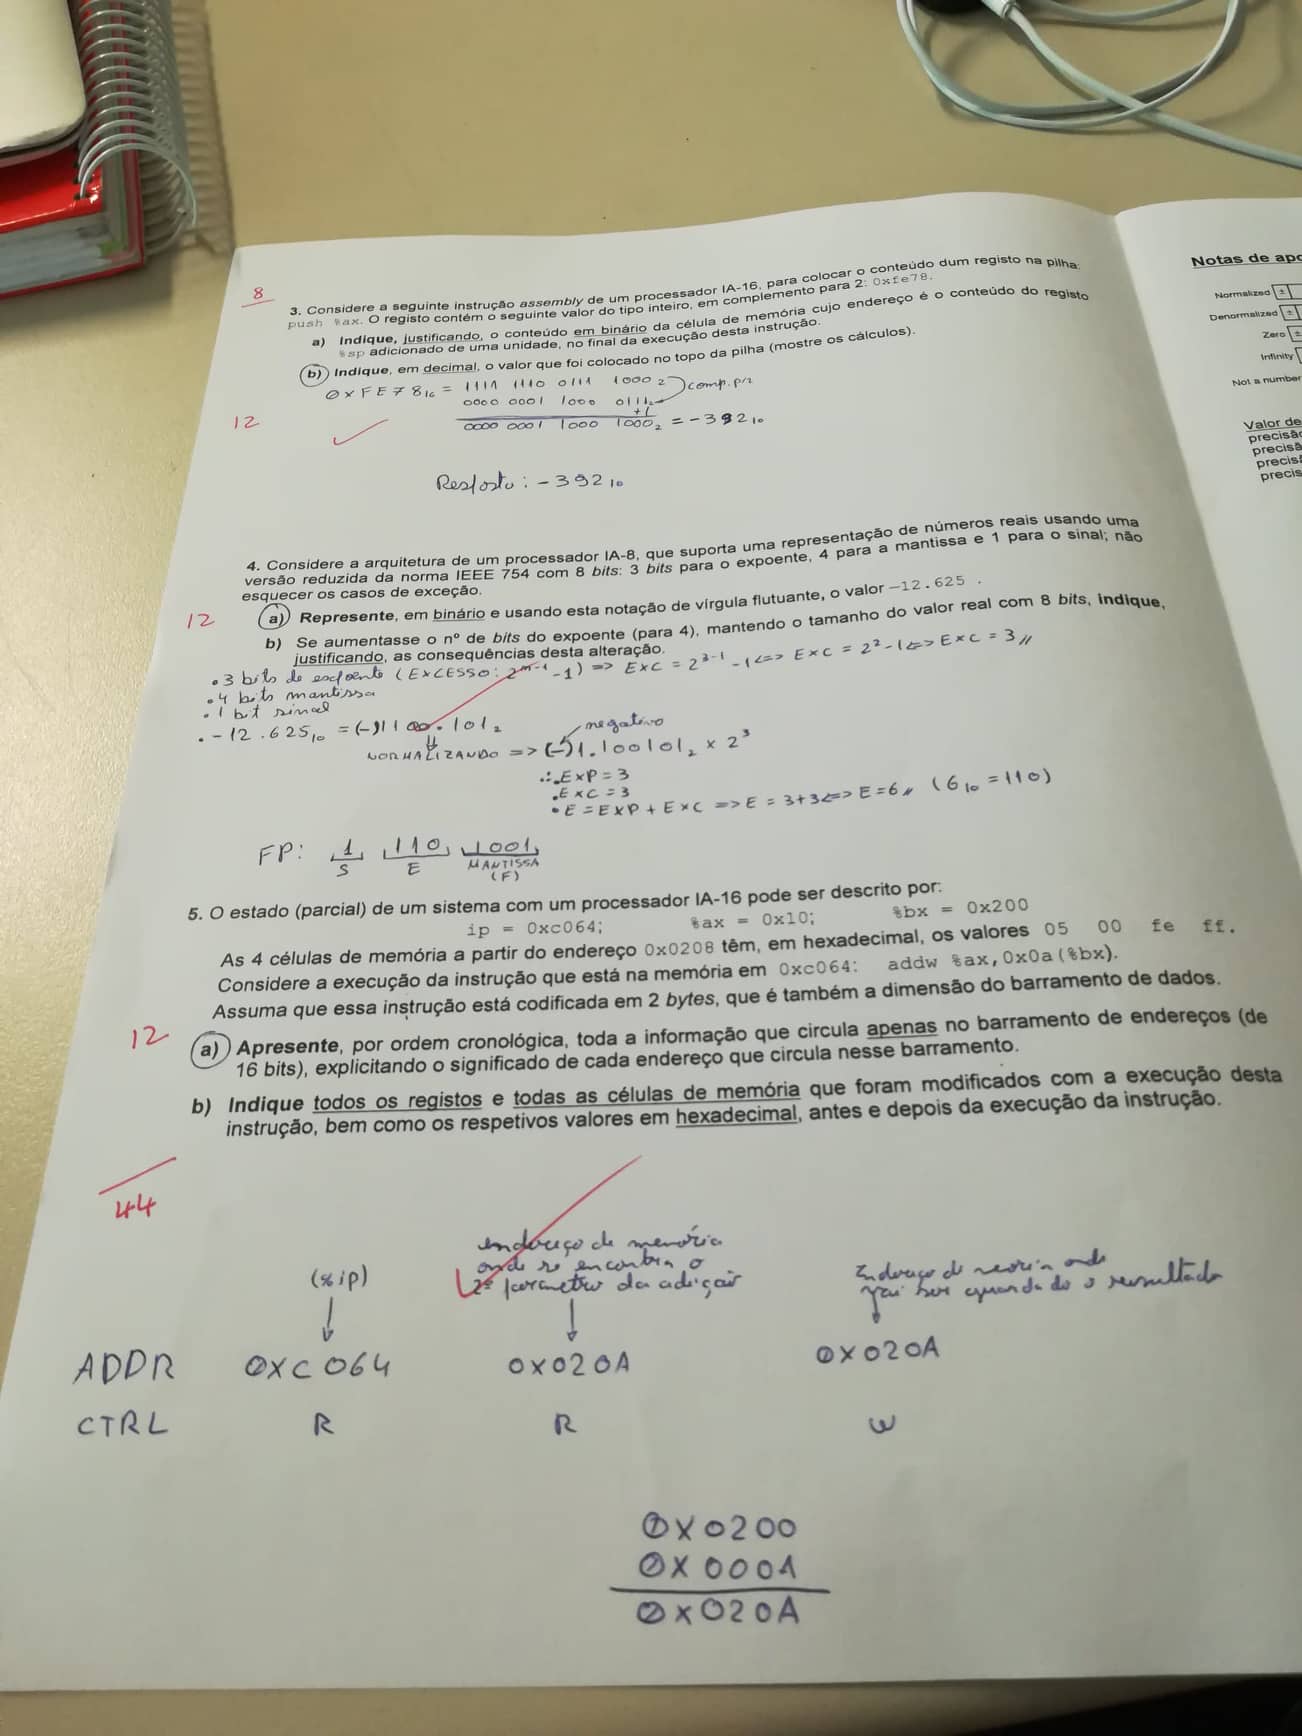 8
3. Considere a seguinte instrução assembly de um processador IA-16, para colocar o conteúdo dum registo na pilha:
push %ax. O registo contém o seguinte valor do tipo inteiro, em complemento para 2: 0xfe78.
a) Indique, justificando, o conteúdo em binário da célula de memória cujo endereço é o conteúdo do registo
%sp adicionado de uma unidade, no final da execução desta instrução.
b) Indique, em decimal, o valor que foi colocado no topo da pilha (mostre os cálculos).
0xFE78₁₆ = 1111 1110 0111 1000₂ comp. p/2
0000 0001 1000 0111₂
+1
12
0000 0001 1000 1000₂ = -392₁₀
Resposta: -392₁₀
4. Considere a arquitetura de um processador IA-8, que suporta uma representação de números reais usando uma
versão reduzida da norma IEEE 754 com 8 bits: 3 bits para o expoente, 4 para a mantissa e 1 para o sinal; não
esquecer os casos de exceção.
12
a) Represente, em binário e usando esta notação de vírgula flutuante, o valor -12.625 .
b) Se aumentasse o nº de bits do expoente (para 4), mantendo o tamanho do valor real com 8 bits, indique,
justificando, as consequências desta alteração.
. 3 bits de expoente (EXCESSO: 2ⁿ⁻¹ -1) => Exc = 2³⁻¹ -1 <=> Exc = 2² -1 <=> Exc = 3 //
. 4 bits mantissa
. 1 bit sinal
. -12.625₁₀ = (-)1100.101₂
negativo
NORMALIZANDO => (-)1.100101₂ × 2³
∴ . EXP = 3
. EXC = 3
. E = EXP + EXC => E = 3+3 <=> E = 6 // (6₁₀ = 110)
FP: 1 110 1001
S E MANTISSA
(F)
5. O estado (parcial) de um sistema com um processador IA-16 pode ser descrito por:
ip = 0xc064; %ax = 0x10; %bx = 0x200
As 4 células de memória a partir do endereço 0x0208 têm, em hexadecimal, os valores 05 00 fe ff.
Considere a execução da instrução que está na memória em 0xc064: addw %ax,0x0a(%bx).
Assuma que essa instrução está codificada em 2 bytes, que é também a dimensão do barramento de dados.
12
a) Apresente, por ordem cronológica, toda a informação que circula apenas no barramento de endereços (de
16 bits), explicitando o significado de cada endereço que circula nesse barramento.
b) Indique todos os registos e todas as células de memória que foram modificados com a execução desta
instrução, bem como os respetivos valores em hexadecimal, antes e depois da execução da instrução.
44
endereço de memória
onde se encontra o
2º parametro da adição
(%ip)
Endereço de memória onde
vai ser guardado o resultado
ADDR 0xC064 0x020A 0x020A
CTRL R R W
0x0200
0x000A
0x020A
Notas de apo
Normalized ±
Denormalized ±
Zero ±
Infinity
Not a number
Valor de
precisã
precisã
precis
precis